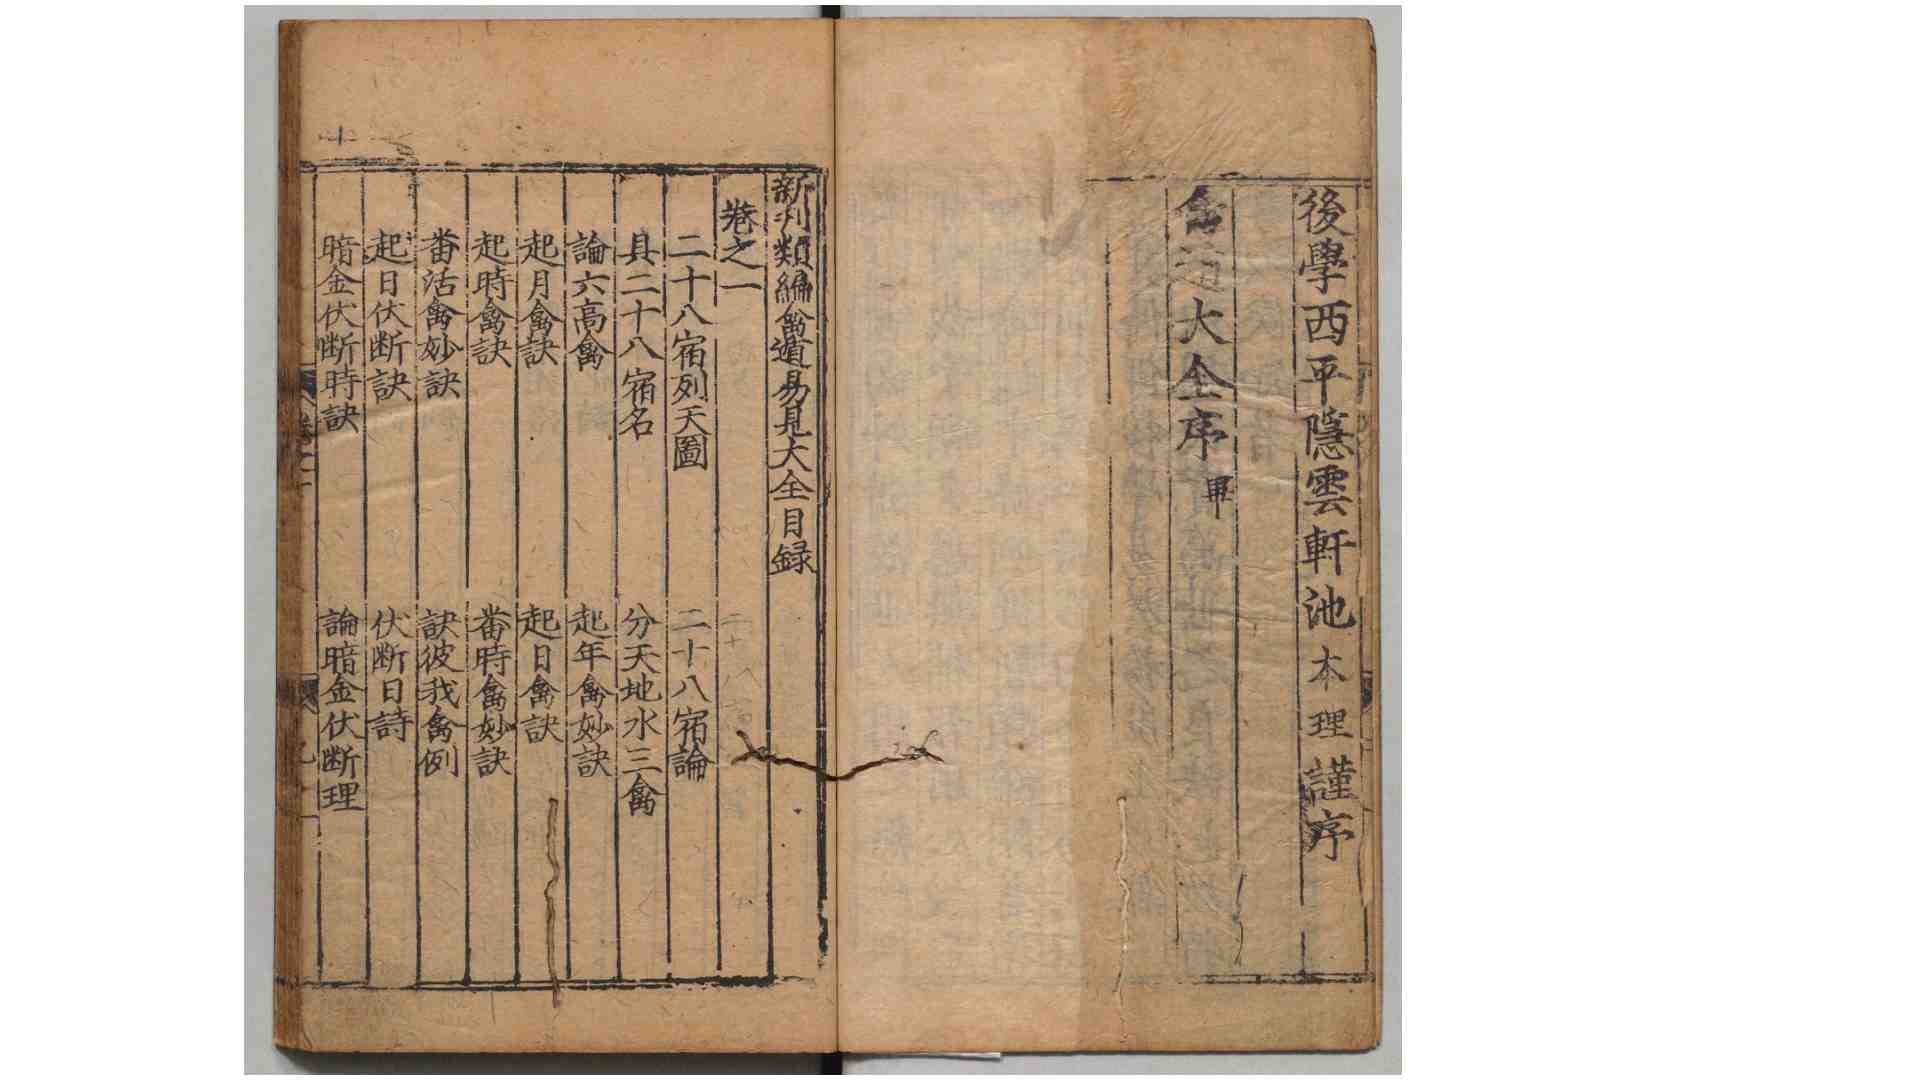 後學西平隱雲軒池本理謹序
禽遁大全序畢
新刋類編禽遁易見大全目録
巻之一
二十八宿列天圖　二十八宿論
具二十八宿名　分天地水三禽
論六高禽　起年禽妙訣
起月禽訣　起日禽訣
起時禽訣　畨時禽妙訣
畨活禽妙訣　訣彼我禽例
起日伏断訣　伏断日詩
暗金伏断時訣　論暗金伏断理